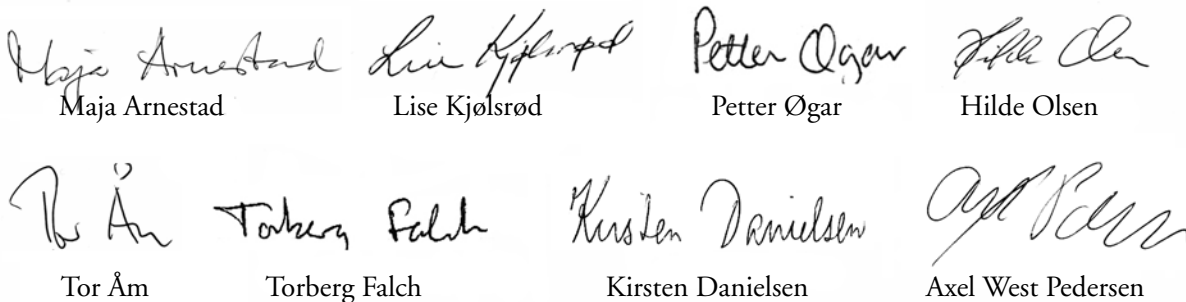 Maja Arnestad Lise Kjølsrød Petter Øgar Hilde Olsen
Maja Arnestad Lise Kjølsrød Petter Øgar Hilde Olsen
Tor Åm Torberg Falch Kirsten Danielsen Axel Peders
Tor Åm Torberg Falch Kirsten Danielsen Axel West Pedersen